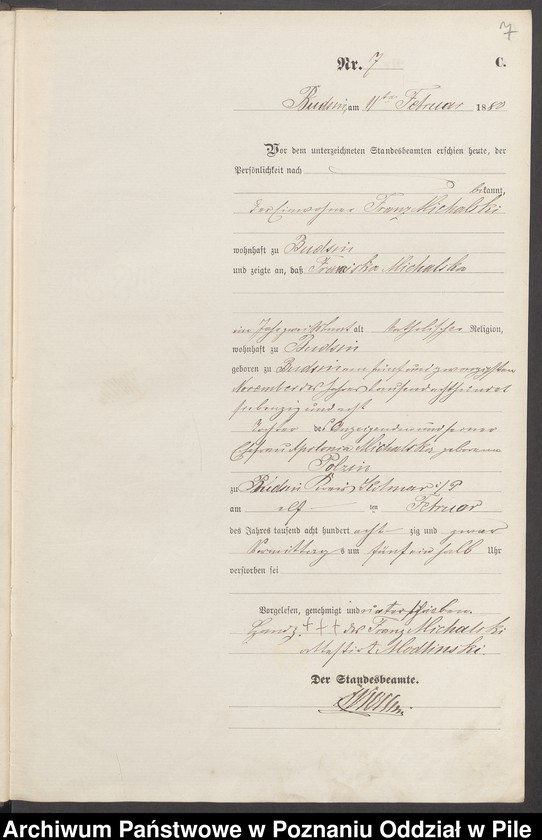 7
Nr. 7 C.
Budsin, am 11ten Februar 1880
Vor dem unterzeichneten Standesbeamten erschien heute, der
Persönlichkeit nach
bekannt,
der Einwohner Franz Michalski
wohnhaft zu Budsin
und zeigte an, daß Franciska Michalska
ein Jahr zwei Monat alt katholischer Religion,
wohnhaft zu Budsin
geboren zu Budsin am fünf und zwanzigsten
November des Jahres tausend achthundert
siebenzig und acht
Tochter des Anzeigenden und seiner
Ehefrau Apolonia Michalska geborene
Polzin
zu Budsin Kreis Kolmar i/P
am elf ten Februar
des Jahres tausend acht hundert acht zig und zwar
Vormittags um fünf ein halb Uhr
verstorben sei
Vorgelesen, genehmigt und unterschrieben
Handz. +++ des Franz Michalski
attestirt Modlinski
Der Standesbeamte.
Archiwum Państwowe w Poznaniu Oddział w Pile